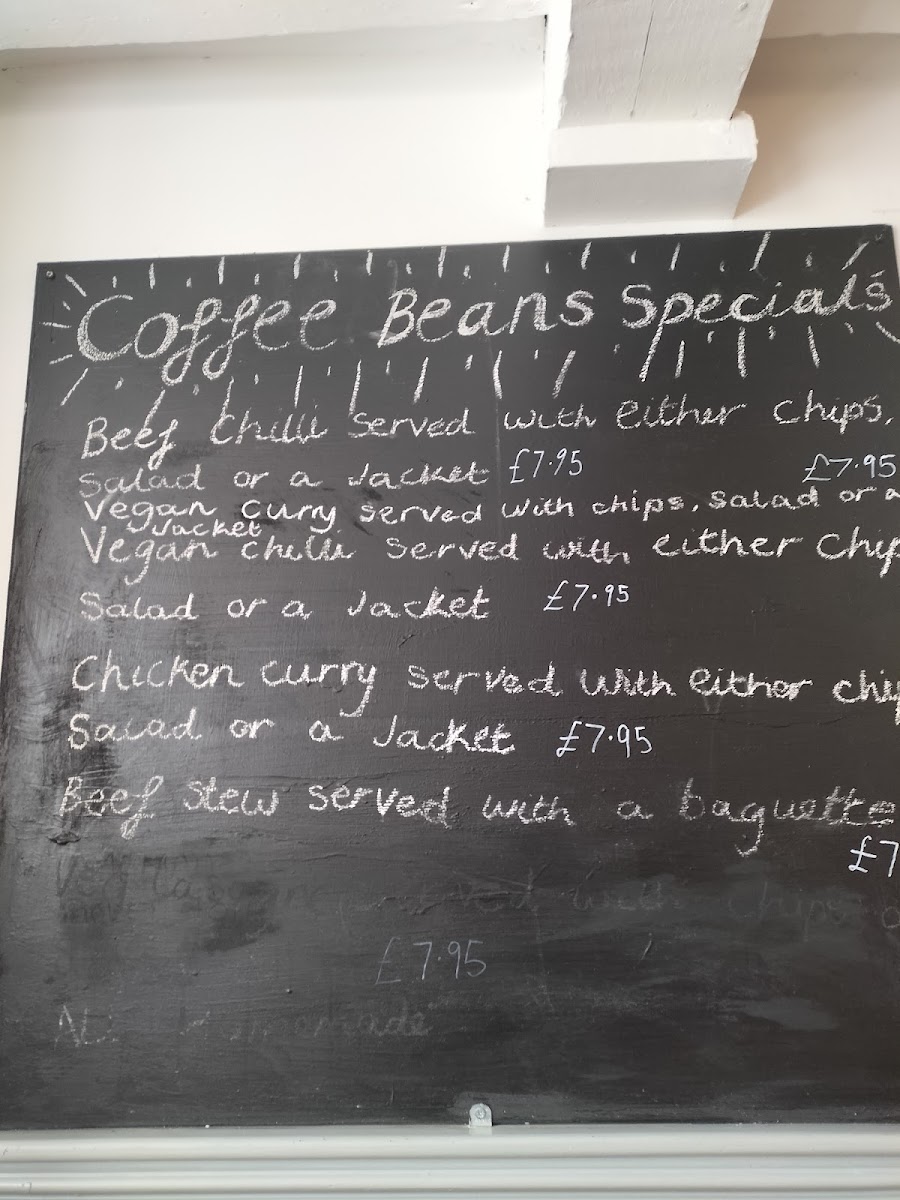 Coffee Beans Specials
Beef Chilli served with either chips,
Salad or a Jacket £7.95 £7.95
Vegan curry served with chips, salad or a
Jacket
Vegan chilli served with either chip
Salad or a Jacket £7.95
Chicken curry served with either chip
Salad or a Jacket £7.95
Beef stew served with a baguette
£7
with chips
£7.95